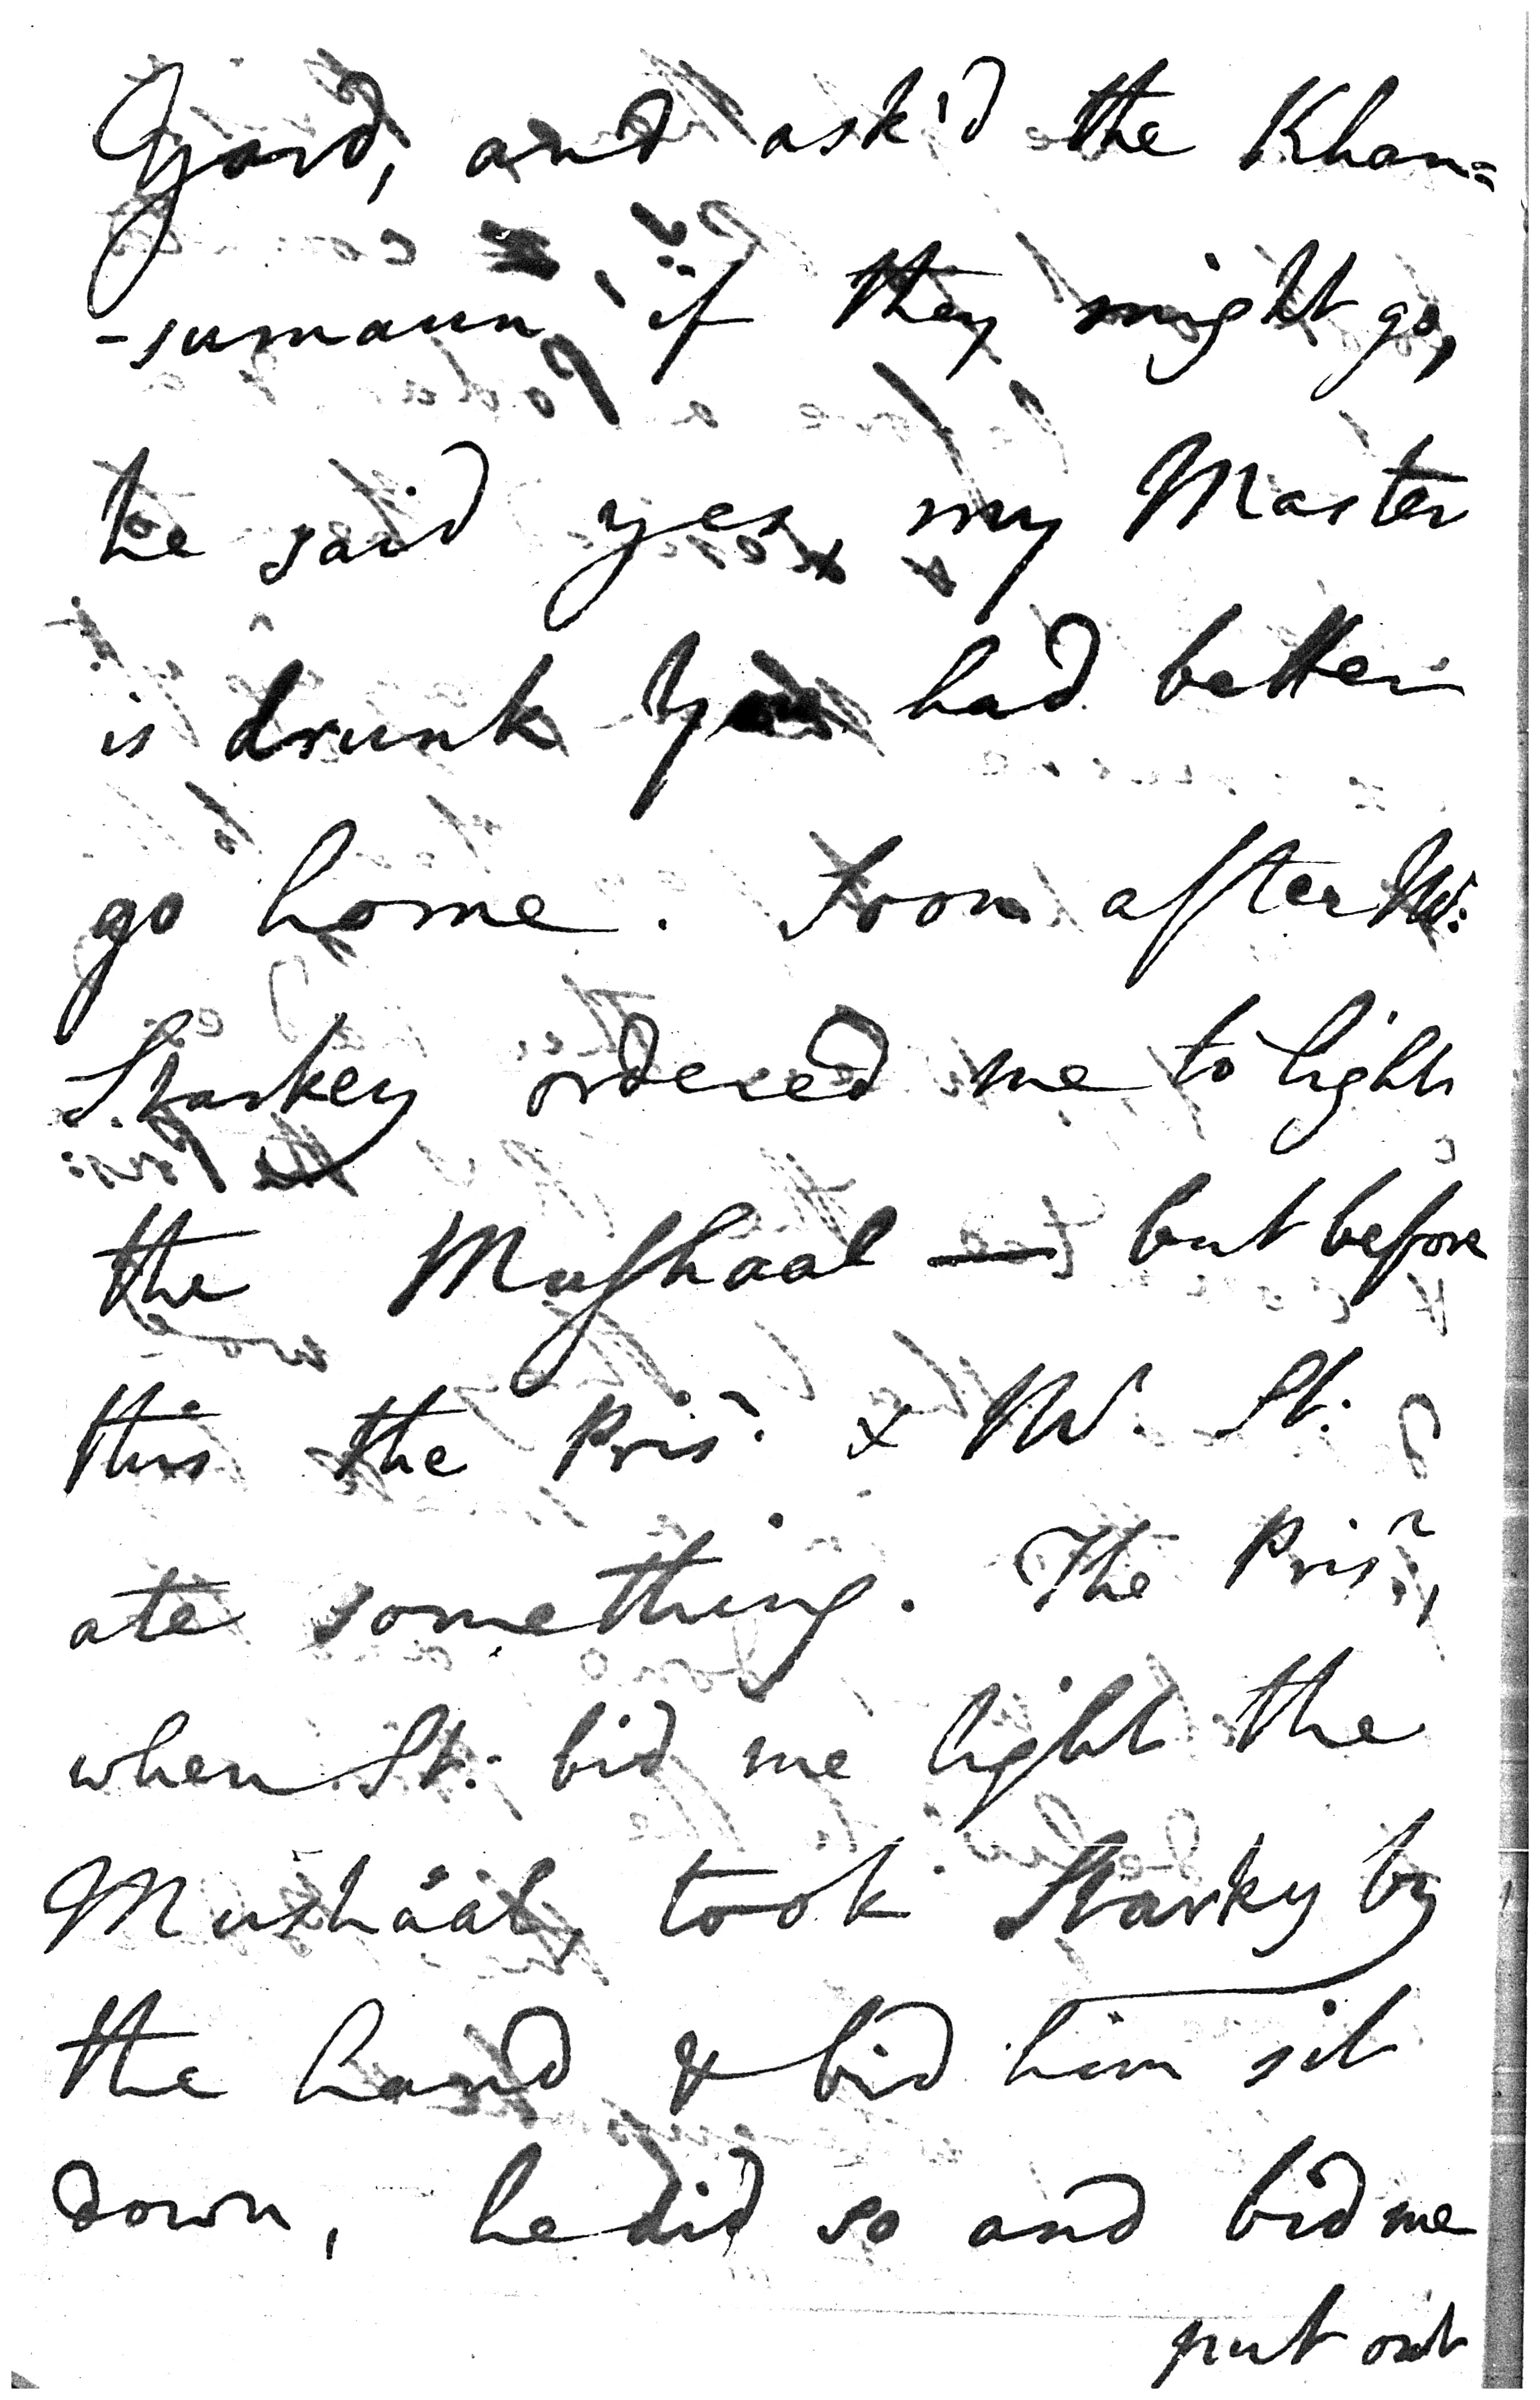 Yard, and ask'd the Khan=
-sumaun, if they might go,
he said yes, my Master
is drunk You had better
go home. Soon after Mr.
Starkey ordered me to light
the Mushaal — but before
this the Prisr. & Mr. St:
ate something. The Prisr.,
when St: bid me light the
Mushaal, took Starky by
the hand & bid him sit
down, he did so and bid me
put out